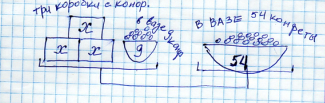 три коробки с конф.
в вазе 9 конф
В ВАЗЕ 54 конфеты
x
x x
9
54